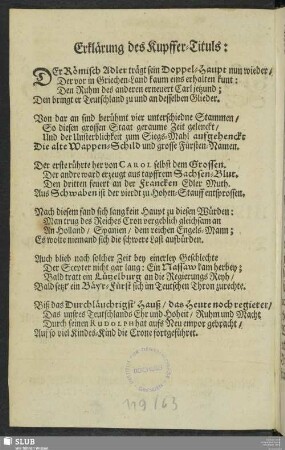 Erklärung des Kupffer-Tituls:
DEr Römisch Adler trägt sein Doppel-Haupt nun wieder/
Der vor in Griechen-Land kaum eins erhalten kunt:
Den Ruhm des anderen erneuert Carl jetzund;
Den bringt er Teutschland zu und an desselben Glieder.
Von dar an sind berühmt vier unterschiedne Stammen/
So diesen grossen Staat geraume Zeit gelenckt/
Und der Unsterblichkeit zum Siegs-Mahl auffgehenckt
Die alte Wappen-Schild und grosse Fürsten-Namen.
Der erste rührte her von CAROL selbst dem Grossen.
Der andre ward erzeugt aus tapfferm Sachsen-Blut.
Den dritten feurt an der Francken Edler Muth.
Aus Schwaben ist der vierdt zu Hohen-Stauff entsprossen.
Nach diesem fand sich lang kein Haupt zu diesen Würden:
Man trug des Reiches Cron vergeblich gleichsam an
An Holland/ Spanien/ dem reichen Engels-Mann;
Es wolte niemand sich die schwere Last auffbürden.
Auch blieb nach solcher Zeit bey einerley Geschlechte
Der Scepter nicht gar lang: Ein Nassaw kam herbey;
Bald tratt ein Lützelburg an die Regierungs Reyh/
Bald setzt' ein Bäyr-Fürst sich im Teutschen Thron zurechte.
Biß das Durchläuchtigst' Hauß/ das Heute noch regieret/
Das unsres Teutschlands Ehr und Hoheit/ Ruhm und Macht
Durch seinen RUDOLPH hat auffs Neu empor gebracht/
Auf so viel Kindes-Kind die Crone fortgeführet.
119/63
SLUB